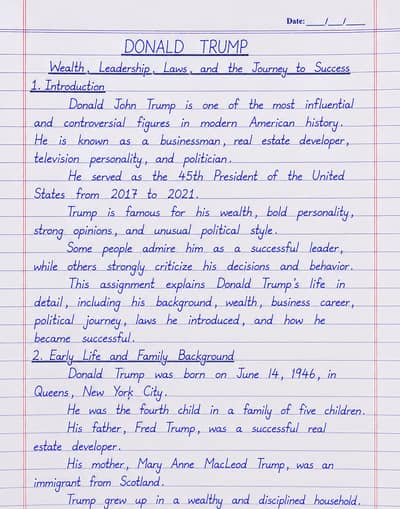 Date: ____/___/_____
DONALD TRUMP
Wealth, Leadership, Laws, and the Journey to Success
1. Introduction
Donald John Trump is one of the most influential
and controversial figures in modern American history.
He is known as a businessman, real estate developer,
television personality, and politician.
He served as the 45th President of the United
States from 2017 to 2021.
Trump is famous for his wealth, bold personality,
strong opinions, and unusual political style.
Some people admire him as a successful leader,
while others strongly criticize his decisions and behavior.
This assignment explains Donald Trump's life in
detail, including his background, wealth, business career,
political journey, laws he introduced, and how he
became successful.
2. Early Life and Family Background
Donald Trump was born on June 14, 1946, in
Queens, New York City.
He was the fourth child in a family of five children.
His father, Fred Trump, was a successful real
estate developer.
His mother, Mary Anne MacLeod Trump, was an
immigrant from Scotland.
Trump grew up in a wealthy and disciplined household.